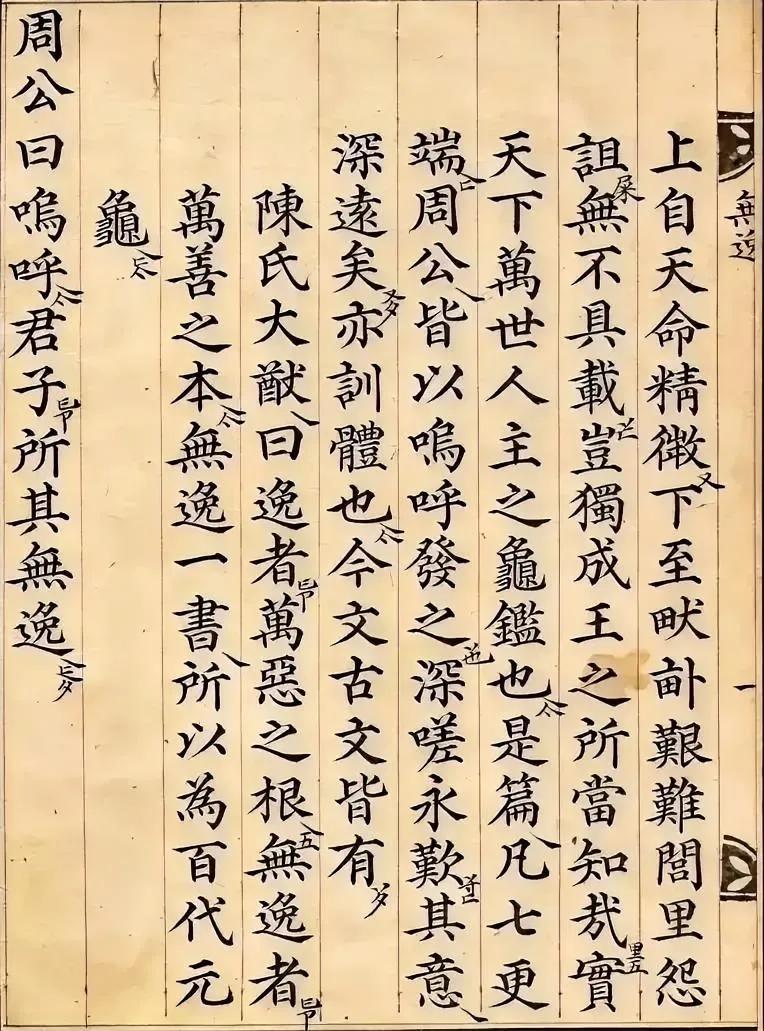 無逸 一
上自天命精微下至畎畝艱難閭里怨
詛無不具載豈獨成王之所當知哉實
天下萬世人主之龜鑑也是篇凡七更
端周公皆以嗚呼發之深嗟永歎其意
深遠矣亦訓體也今文古文皆有
陳氏大猷曰逸者萬惡之根無逸者
萬善之本無逸一書所以為百代元
龜
周公曰嗚呼君子所其無逸